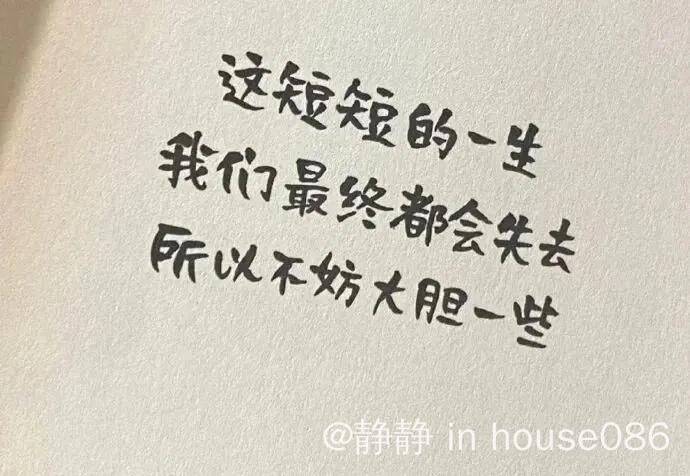 这短短的一生
我们最终都会失去
所以不妨大胆一些
@静静 in house086